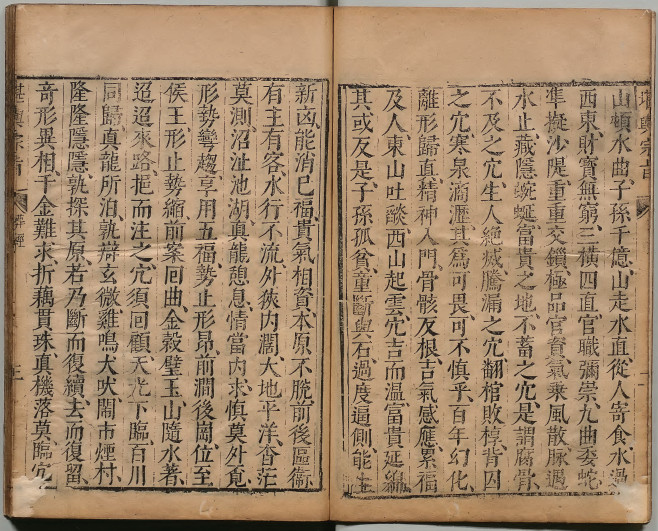 山頓水曲、子孫千億、山走水直、從人寄食、水過
西東、財寶無窮、三橫四直、官職彌崇、九曲委蛇、
準擬沙隄、重重交鎖、極品官資、氣乘風散、脉遇
水止、藏隱蜿蜒、富貴之地、不蓄之穴、是謂腐骨、
不及之穴、生人絶滅、騰漏之穴、翻棺敗槨、背囚
之穴、寒泉滴瀝、其為可畏、可不慎乎、百年幻化、
離形歸真、精神入門、骨骸反根、吉氣感應、累福
及人、東山吐燄、西山起雲、穴吉而溫、富貴延綿、
其或反是、子孫孤貧、童斷與石、過度逼側、能生
新凶、能消已福、貴氣相資、本原不脫、前後區衞、
有主有客、水行不流、外狹內濶、大地平洋、杳茫
莫測、沼沚池湖、真龍憩息、情當內求、慎莫外覓、
形勢彎趨、享用五福、勢止形昂、前澗後崗、位至
侯王、形止勢縮、前案回曲、金穀璧玉、山隨水著、
迢迢來路、挹而注之、穴須回顧、天光下臨、百川
同歸、真龍所泊、孰辯玄微、雞鳴犬吠、鬧市煙村、
隆隆隱隱、孰探其原、若乃斷而復續、去而復留、
竒形異相、千金難求、折藕貫珠、真機落莫、臨穴
堪輿宗旨
葬經
三
堪輿宗旨